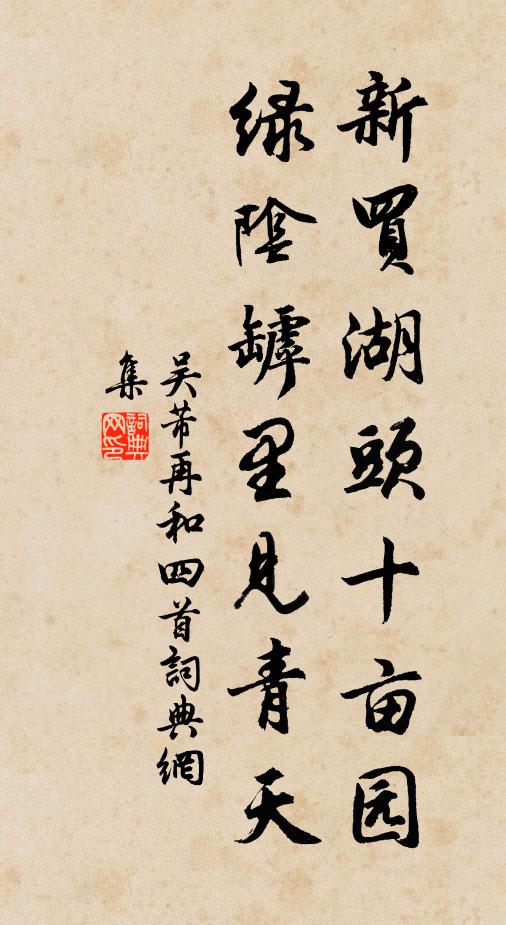 新買湖頭十亩园
绿陰罅里見青天
吴芾再和四首詞典網
集
詞典网印